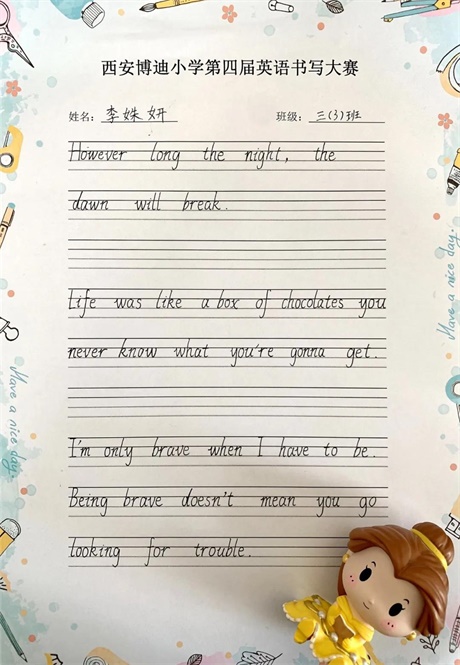 西安博迪小学第四届英语书写大赛
姓名: 李姝妍 班级: 三(3)班
However long the night, the
dawn will break.
Life was like a box of chocolates you
never know what you're gonna get.
I'm only brave when I have to be.
Being brave doesn't mean you go
looking for trouble.
Have a nice day.
Have a nice day.